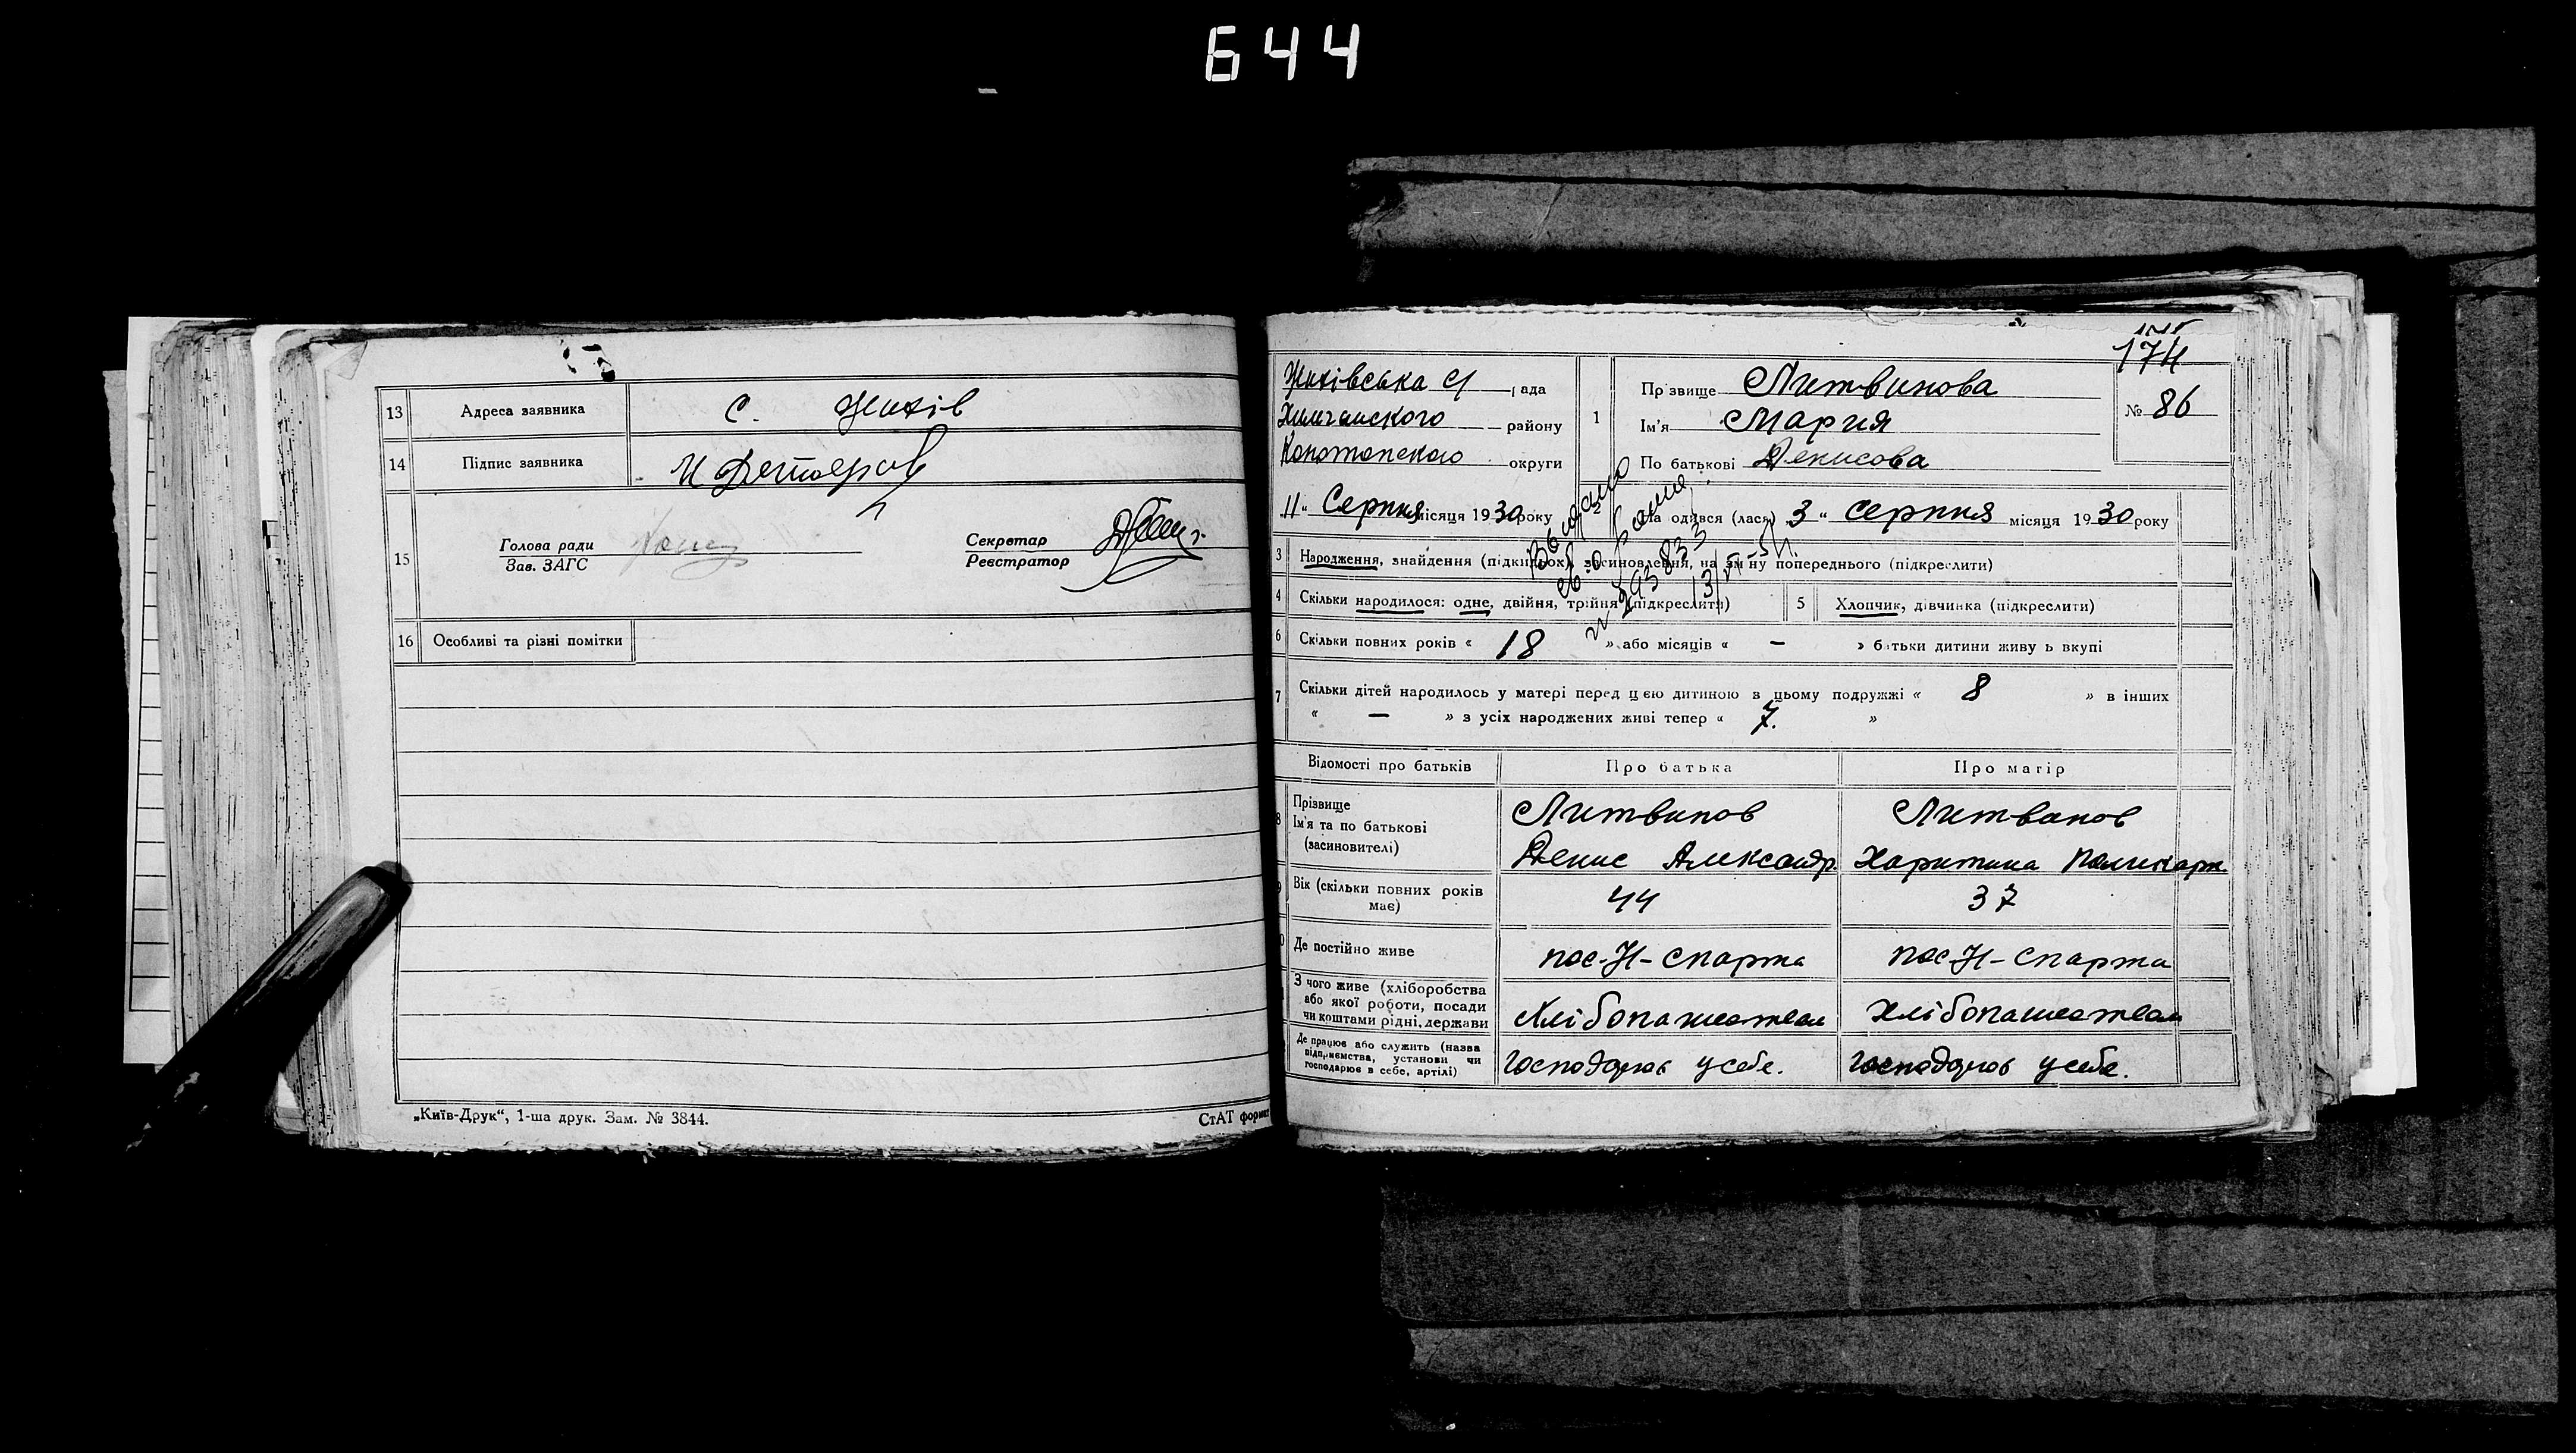 644
13 Адреса заявника С. Жихів
14 Підпис заявника
15 Голова ради
Зав. ЗАГС
Секретар
Реєстратор
16 Особливі та різні помітки
„Київ-Друк“, 1-ша друк. Зам. № 3844.
СтАТ формат
174
Жихівська с/ рада
Хильчанского району
Конотопского округи
1
Прізвище Литвинова
Ім'я Мария
По батькові Денисова
№ 86
11 " Серпня місяця 1930 року
одився (лася) 3 " Серпня місяця 1930 року
Выдано
293833
3 Народження, знайдення (підкидьох), засиновлення, на зміну попереднього (підкреслити)
4 Скільки народилося: одне, двійня, трійня (підкреслити)
5 Хлопчик, дівчинка (підкреслити)
6 Скільки повних років « 18 » або місяців « — » батьки дитини живуть вкупі
7 Скільки дітей народилось у матері перед цією дитиною в цьому подружжі « 8 » в інших
« — » з усіх народжених живі тепер « 7. »
Відомості про батьків Про батька Про матір
8 Прізвище
Ім'я та по батькові
(засиновителі)
Литвинов
Денис Александр.
Литванов
Харитина Поликарп.
9 Вік (скільки повних років
має)
44
37
Де постійно живе
пос-Н-Спарта
пос-Н-Спарта
З чого живе (хліборобства
або якої роботи, посади
чи коштами рідні, держави
Хлібопашеством
Хлібопашеством
Де працює або служить (назва
підприємства, установи чи
господарює в себе, артілі)
Господарюв усебе.
Господарюв усебе.